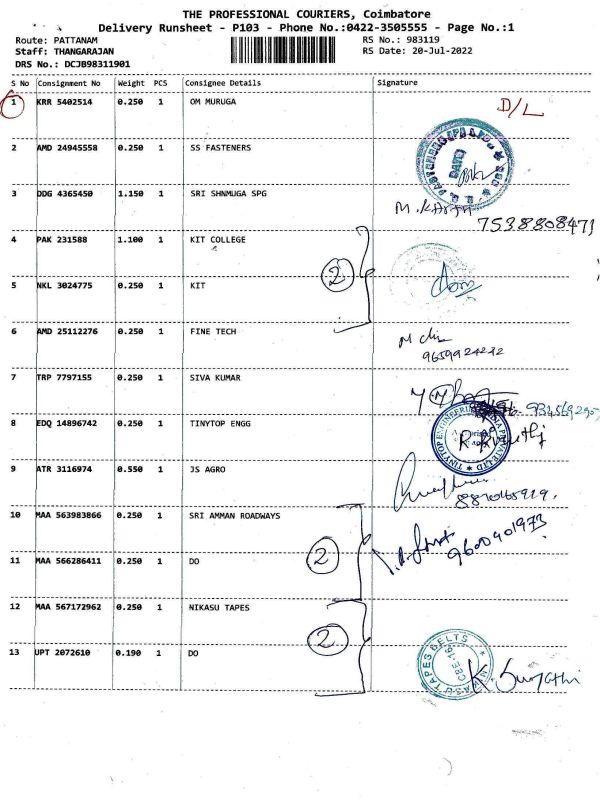 THE PROFESSIONAL COURIERS, Coimbatore
Delivery Runsheet - P103 - Phone No.:0422-3505555 - Page No.:1
Route: PATTANAM
RS No.: 983119
Staff: THANGARAJAN
RS Date: 20-Jul-2022
DRS No.: DCJB98311901
S No Consignment No Weight PCS Consignee Details Signature
1 KRR 5402514 0.250 1 OM MURUGA D/L
2 AMD 24945558 0.250 1 SS FASTENERS
3 DDG 4365450 1.150 1 SRI SHNMUGA SPG
7538808471
4 PAK 231588 1.100 1 KIT COLLEGE
2
5 NKL 3024775 0.250 1 KIT
6 AMD 25112276 0.250 1 FINE TECH
7 TRP 7797155 0.250 1 SIVA KUMAR
8 EDQ 14896742 0.250 1 TINYTOP ENGG
9 ATR 3116974 0.550 1 JS AGRO
10 MAA 563983866 0.250 1 SRI AMMAN ROADWAYS
9600401973
2
11 MAA 566286411 0.250 1 DO
12 MAA 567172962 0.250 1 NIKASU TAPES
2
13 UPT 2072610 0.190 1 DO